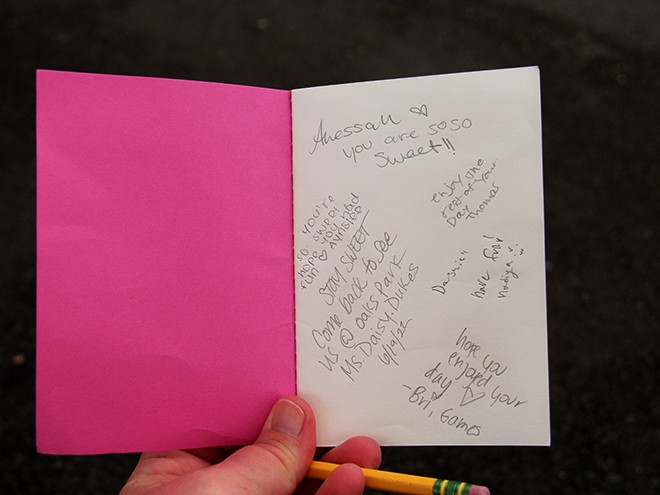 Anessah ♡
you are so so
sweet!!
enjoy the
rest of your
day
Thomas
so you're
sweet!
hope you had
fun ♡
STAY SWEET
Come back to see
us @ oaks park
Ms. Daisy. Dukes
6/19/22
have fun!
Nadiya :)
hope you
enjoyed
your
day ♡
-Bri, Games